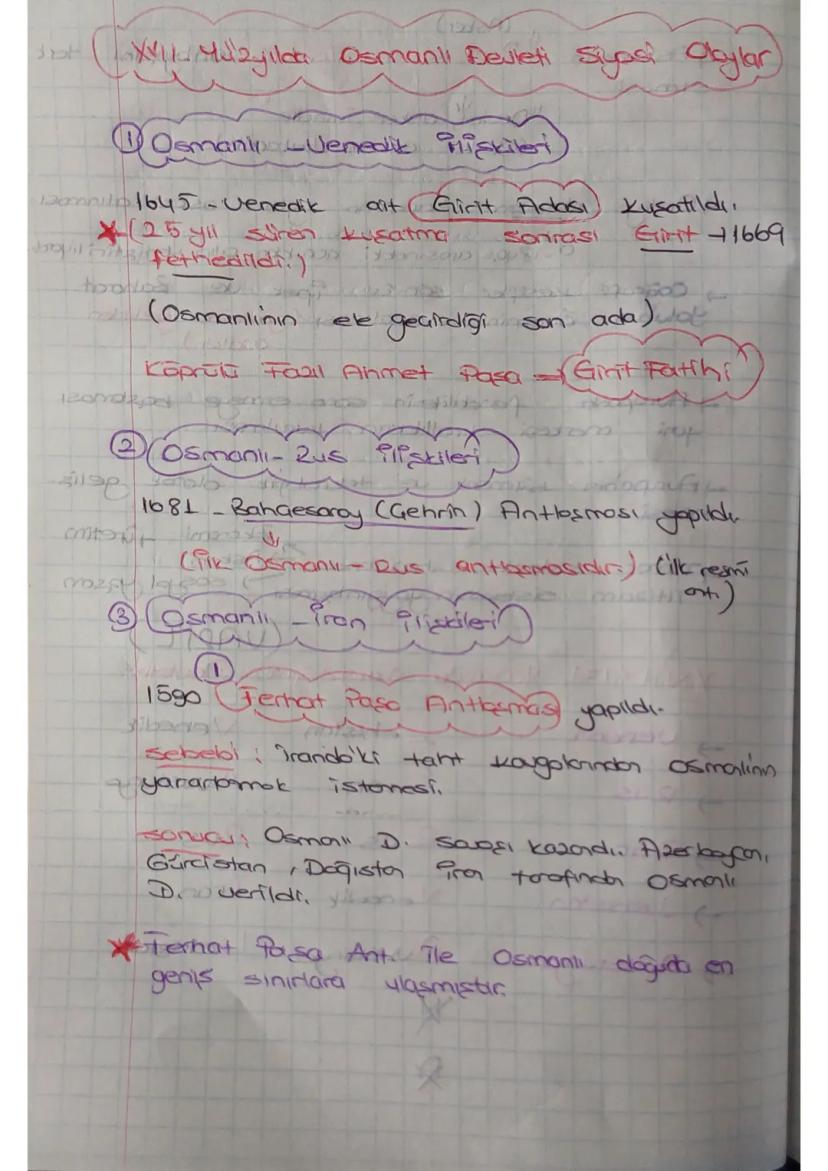 XVII. Yüzyılda Osmanlı Devleti Siyasi Olaylar
① Osmanlı - Venedik İlişkileri
1645 - Venedik ait Girit Adası kuşatıldı.
* (25 yıl süren kuşatma sonrası Girit → 1669
fethedildi.)
(Osmanlının ele geçirdiği son ada)
Köprülü Fazıl Ahmet Paşa → Girit Fatihi
② Osmanlı - Rus İlişkileri
1681 - Bahçesaray (Çehrin) Antlaşması yapıldı.
↓
(İlk Osmanlı - Rus antlaşmasıdır.) (ilk resmi
ant.)
③ Osmanlı - İran İlişkileri
①
1590 Ferhat Paşa Antlaşması yapıldı.
Sebebi: İranda'ki taht kavgalarından Osmanlının
yararlanmak istemesi.
Sonucu: Osmanlı D. savaşı kazandı. Azerbaycan,
Gürcistan, Dağıstan İran tarafından Osmanlı
D. verildi.
* Ferhat Paşa Ant. ile Osmanlı doğuda en
geniş sınırlara ulaşmıştır.